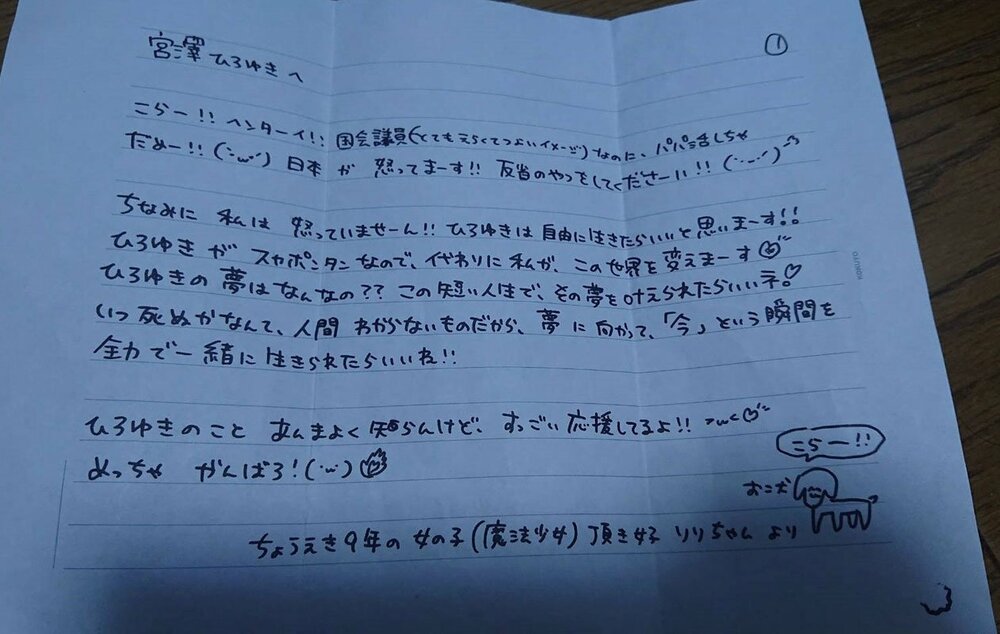 ①
宮澤ひろゆきへ
こらー!! ヘンターイ!! 国会議員(とてもえらくてつよいイメージ)なのに、パパ活しちゃ
だめー!! (·̀ω·́) 日本が 怒ってまーす!! 反省のやつをしてくださーい!! (·̀ω·́)
ちなみに 私は 怒っていませーん!! ひろゆきは 自由に生きたらいいと思いまーす!!
ひろゆきが スカポンタンなので、代わりに私が、この世界を変えまーす
ひろゆきの 夢はなんなの?? この短い人生で、その夢を叶えられたらいいネ♡
いつ死ぬかなんて、人間 わからないものだから、夢に向かって、「今」という瞬間を
全力で一緒に生きられたらいいね!!
ひろゆきのこと あんまよく知らんけど、すっごい応援してるよ!! >ω<♡
めっちゃ がんばろ!(·ω·)
こらー!!
おこ犬
ちょうえき9年の女の子(魔法少女)頂き女子 りりちゃん より